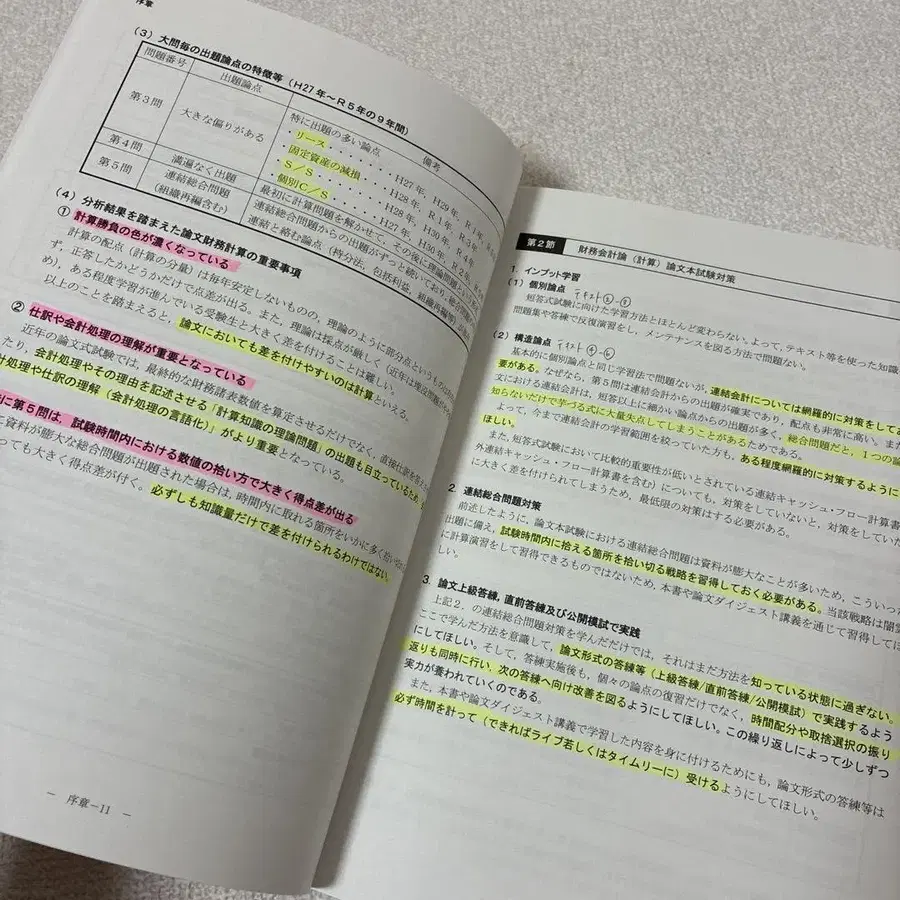 序章
(3) 大問毎の出題論点の特徴等(H27年~R5年の9年間)
問題番号 出題論点 備考
第3問 大きな偏りがある 特に出題の多い論点
・リース・・・・・・H27年、H29年、R1年、
・固定資産の減損・・・・H28年、R1年、R3年
・S/S・・・・・・H28年、H30年、R4年
・個別C/S・・・・・H27年、H30年、R2年
第4問 満遍なく出題 最初に計算問題を解かせて、その後に理論問題
第5問 連結総合問題 連結総合問題からの出題がずっと続いており、
(組織再編含む) 連結と絡む論点(持分法、包括利益、組織再編等)
(4) 分析結果を踏まえた論文財務計算の重要事項
① 計算勝負の色が濃くなっている
計算の配点(計算の分量)は毎年安定しないものの、理論のように部分点というものは
ず、正答したかどうかだけで点差が出る。また、理論は採点が厳しく(近年は埋没問題が
め)、ある程度学習が進んでいる受験生と大きく差が付けることは難しい。
以上のことを踏まえると、論文においても差を付けやすいのは計算といえる。
② 仕訳や会計処理の理解が重要となっている
近年の論文式試験では、最終的な財務諸表数値を算定させるだけでなく、直接仕訳を答え
たり、会計処理やその理由を記述させる「計算知識の理論問題」の出題も目立っているため、
計処理や仕訳の理解(会計処理の言語化)」がより重要となっている。
に第5問は、試験時間内における数値の拾い方で大きく得点差が出る
に資料が膨大な総合問題が出題された場合は、時間内に取れる箇所をいかに多く拾い
っても大きく得点差が付く。必ずしも知識量だけで差を付けられるわけではない。
― 序章-11 ―
第2節 財務会計論(計算)論文本試験対策
1. インプット学習
(1) 個別論点 テキスト①~③
短答式試験に向けた学習方法とほとんど変わらない。よって、テキスト等を使った知識
問題集や答練で反復演習をし、メンテナンスを図る方法で問題ない。
(2) 構造論点 テキスト④~⑥
基本的に個別論点と同じ学習法で問題ないが、連結会計については網羅的に対策をしてお
要がある。なぜなら、第5問は連結会計からの出題が確実であり、配点も非常に高い。また
文における連結会計は、短答以上に細かい論点からの出題が多く、総合問題だと、1つの論
知らないだけで芋づる式に大量失点してしまうことがあるためである。
よって、今まで連結会計の学習範囲を絞っていた方も、ある程度網羅的に対策するように
ほしい。
また、短答式試験において比較的重要性が低いとされている連結キャッシュ・フロー計算書
外連結キャッシュ・フロー計算書を含む)についても、対策をしていないと、対策をしていた
に大きく差を付けられてしまうため、最低限の対策はする必要がある。
2. 連結総合問題対策
前述したように、論文本試験における連結総合問題は資料が膨大なことが多いため、こういっ
出題に備え、試験時間内に拾える箇所を拾い切る戦略を習得しておく必要がある。当該戦略は闇雲
に計算演習をして習得できるものではないため、本書や論文ダイジェスト講義を通じて習得してほ
しい。
3. 論文上級答練,直前答練及び公開模試で実践
上記2.の連結総合問題対策を学んだだけでは、それはまだ方法を知っている状態に過ぎない。
ここで学んだ方法を意識して、論文形式の答練等(上級答練/直前答練/公開模試)で実践するよう
にしてほしい。そして、答練実施後も、個々の論点の復習だけでなく、時間配分や取捨選択の振り
返りも同時に行い、次の答練へ向け改善を図るようにしてほしい。この繰り返しによって少しずつ
実力が養われていくのである。
また、本書や論文ダイジェスト講義で学習した内容を身に付けるためにも、論文形式の答練等は
必ず時間を計って(できればライブ若しくはタイムリーに)受けるようにしてほしい。